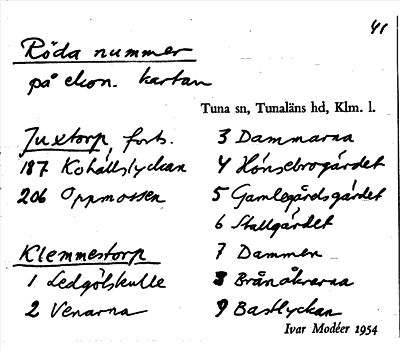 41
Röda nummer
på ekon. kartan
Tuna sn, Tunaläns hd, Klm. l.
Juxtorp, forts.
187 Kohállslyckan
206 Oppmossen
Klemmestorp
1 Ledgölskulle
2 Venarna
3 Dammarna
4 Hönsebrogärdet
5 Gamlegårdsgärdet
6 Stallgärdet
7 Dammen
8 Brånåkrarna
9 Bastlyckan
Ivar Modéer 1954